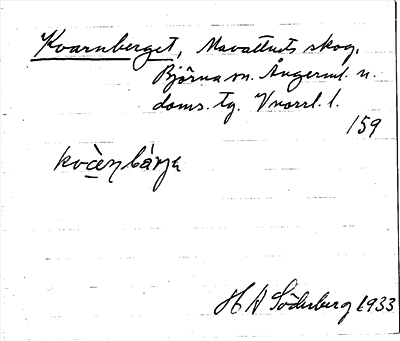 Kvarnberget, Mavattnets skog,
Björna sn. Ångerml. n.
doms. tg. Vnorrl. l.
159
H A Söderberg 1933